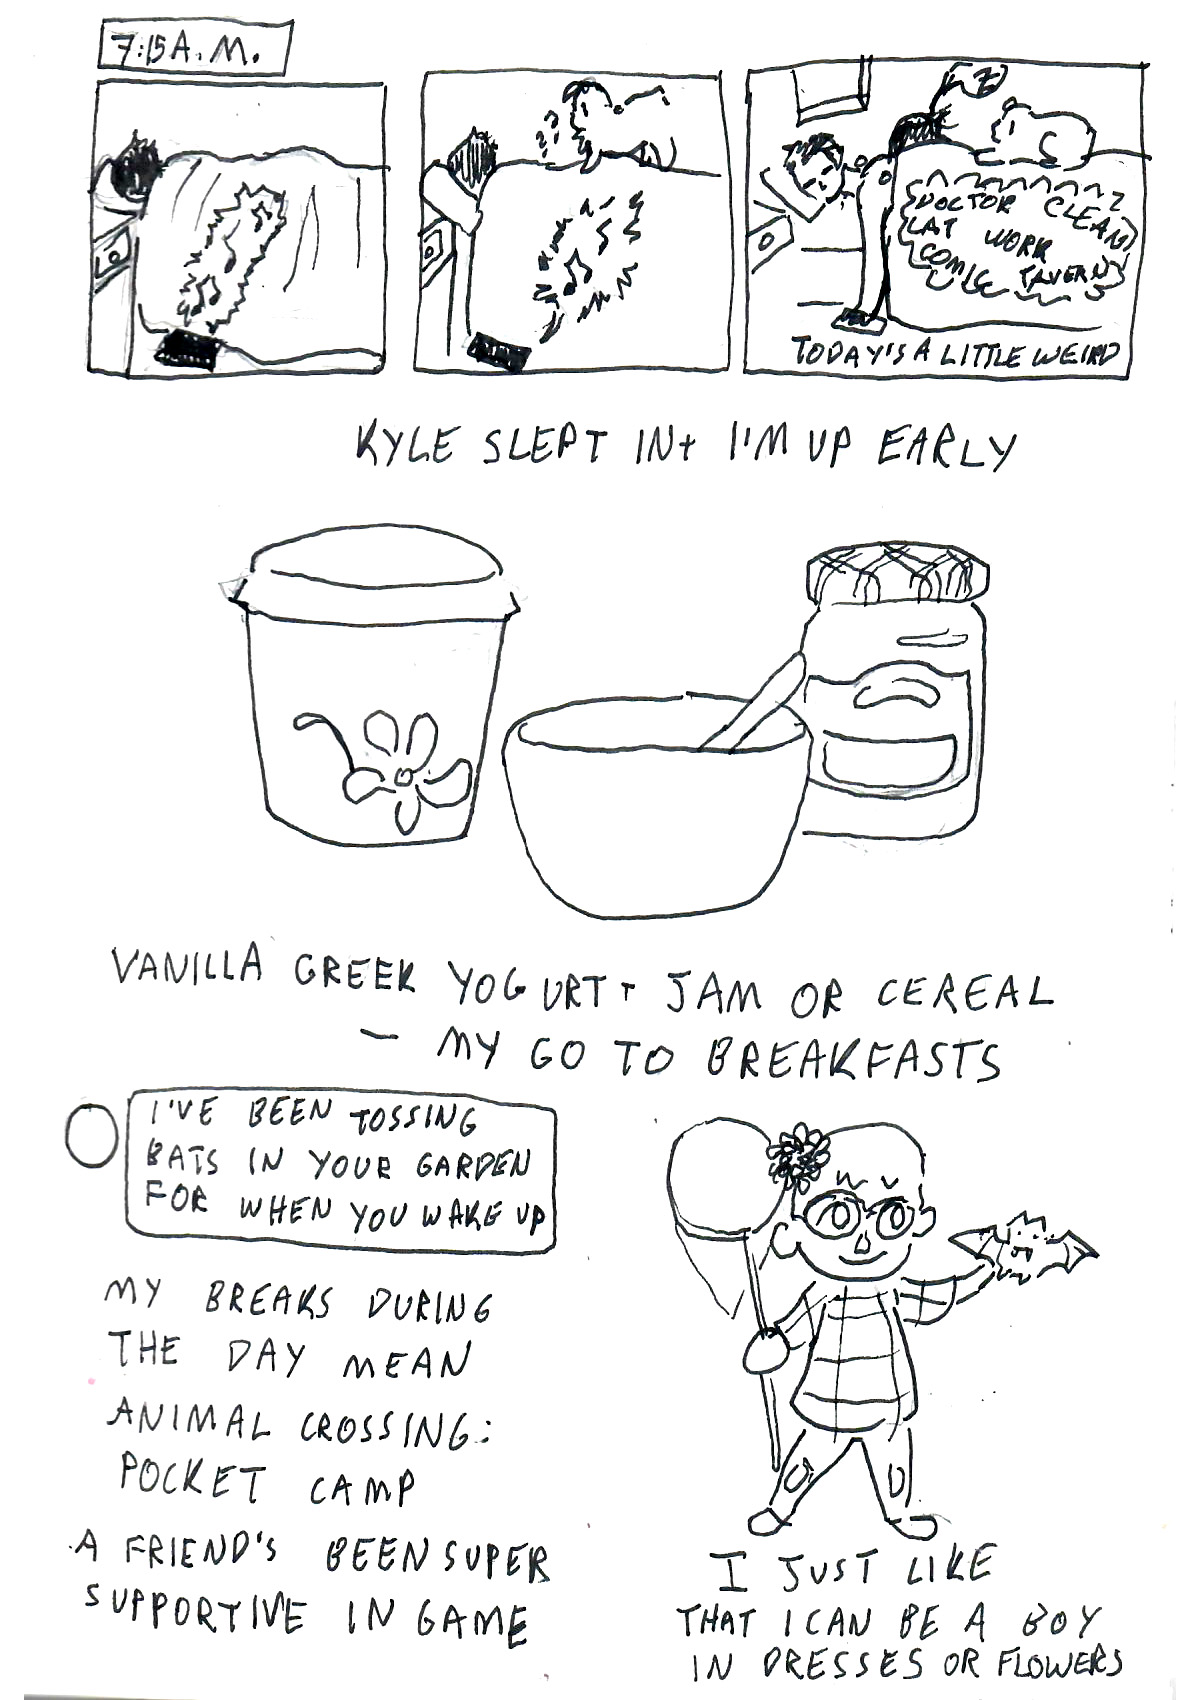 7:15 A.M.
Z
DOCTOR CLEAN
CAT WORK
COMIC TAVERN
TODAY'S A LITTLE WEIRD
KYLE SLEPT IN + I'M UP EARLY
VANILLA GREEK YOGURT + JAM OR CEREAL
— MY GO TO BREAKFASTS
I'VE BEEN TOSSING
BATS IN YOUR GARDEN
FOR WHEN YOU WAKE UP
MY BREAKS DURING
THE DAY MEAN
ANIMAL CROSSING:
POCKET CAMP
A FRIEND'S BEEN SUPER
SUPPORTIVE IN GAME
I JUST LIKE
THAT I CAN BE A BOY
IN DRESSES OR FLOWERS